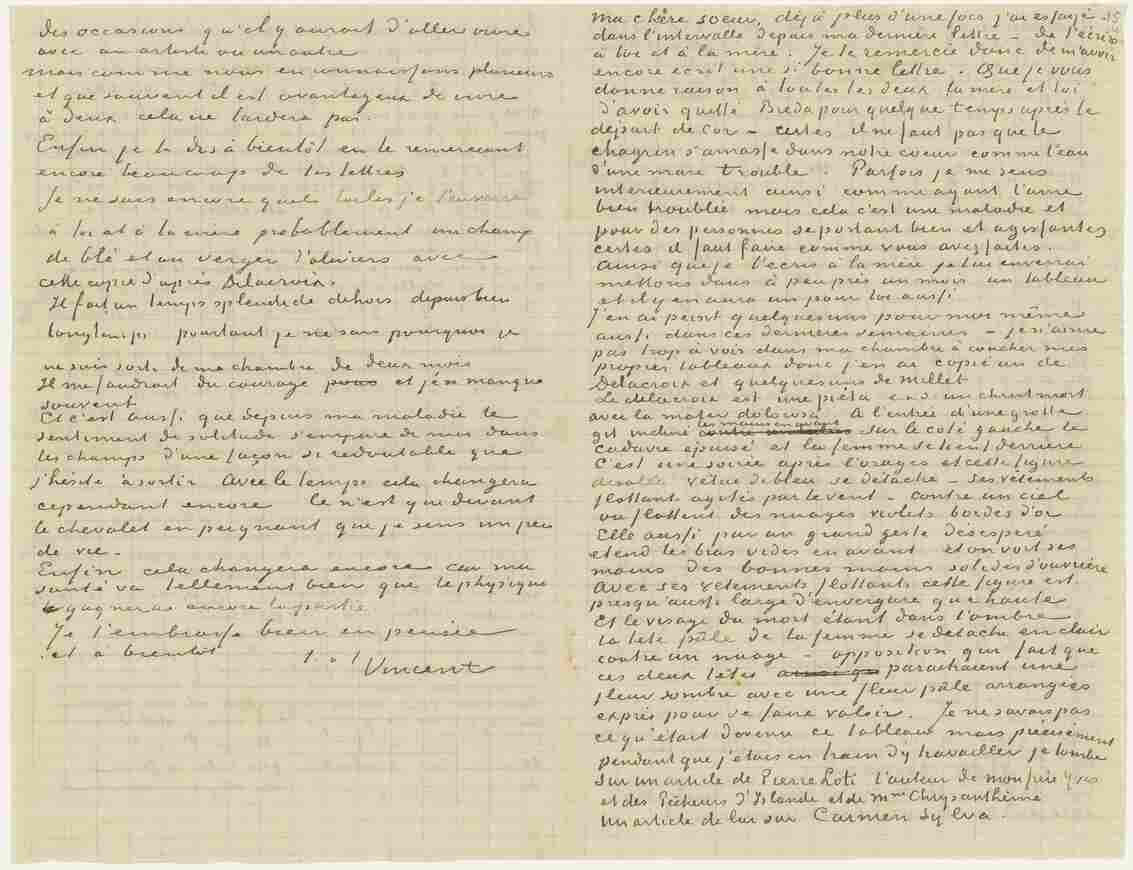 des occasions qu'il y aurait d'aller vivre
avec un artiste ou un autre
mais comme nous en connaissons plusieurs
et que souvent il est avantageux de vivre
à deux cela ne tardera pas.
Enfin je te dis à bientôt en te remerciant
encore beaucoup de tes lettres
Je ne sais encore quels toiles je t'enverrai
à toi et à la mère probablement un champ
de blé et un verger d'oliviers avec
cette copie d'après Delacroix.
Il fait un temps splendide dehors depuis bien
longtemps pourtant je ne sais pourquoi je
ne suis sorti de ma chambre de deux mois
Il me faudrait du courage pour et j'en manque
souvent
Et c'est aussi que depuis ma maladie le
sentiment de solitude s'empare de moi dans
les champs d'une façon si redoutable que
j'hésite à sortir. Avec le temps cela changera
cependant encore. Ce n'est que devant
le chevalet en peignant que je sens un peu
de vie –
Enfin cela changera encore car ma
santé va tellement bien que le physique
gagnera encore la partie
Je t'embrasse bien en pensée
et à bientôt
t. à t.
Vincent
Ma chère soeur, déjà plus d'une fois j'ai essayé
dans l'intervalle depuis ma dernière lettre – de t'écrire
à toi et à la mère. Je te remercie donc de m'avoir
encore écrit une si bonne lettre. Que je vous
donne raison à toutes les deux la mère et toi
d'avoir quitté Breda pour quelque temps après le
départ de Cor – certes il ne faut pas que le
chagrin s'amasse dans notre coeur comme l'eau
d'une mare trouble. Parfois je me sens
interieurement ainsi comme ayant l'âme
bien troublée mais cela c'est une maladie et
pour des personnes se portant bien et agissantes
certes il faut faire comme vous avez faites.
Ainsi que je l'écris à la mère je lui enverrai
mettons dans à peu près un mois un tableau
et il y en aura un pour toi aussi
J'en ai peint quelques uns pour moi même
aussi dans ces dernières semaines – je n'aime
pas trop à voir dans ma chambre à coucher mes
propres tableaux donc j'en ai copié un de
Delacroix et quelques uns de Millet
Le delacroix est une piéta c.à.d. un christ mort
avec la mater dolorosa. A l'entrée d'une grotte
gît incliné les mains en avant sur le coté gauche le
cadavre épuisé et la femme se tient derrière
C'est une soirée après l'orage et cette figure
désolée vêtue de bleu se détache – ses vêtements
flottant agités par le vent – contre un ciel
où flottent des nuages violets bordés d'or
Elle aussi par un grand geste désespéré
étend les bras vides en avant et on voit ses
mains des bonnes mains solides d'ouvrière
Avec ses vêtements flottants cette figure est
presqu'aussi large d'envergure que haute
Et le visage du mort étant dans l'ombre
la tête pâle de la femme se détache en clair
contre un nuage – opposition qui fait que
ces deux têtes paraissent une
fleur sombre avec une fleur pâle arrangées
exprès pour se faire valoir. Je ne savais pas
ce qu'était devenu ce tableau mais précisément
pendant que j'étais en train d'y travailler je tombe
sur un article de Pierre Loti l'auteur de mon frère Yves
et des Pêcheurs d'Islande et de Mme Chrysanthème
un article de lui sur Carmen Sylva.